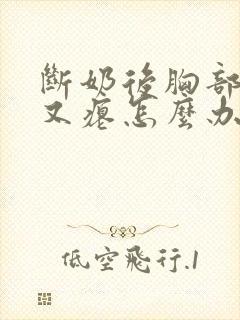 斷奶後胸部
又癟怎麼办
低空飛行.1